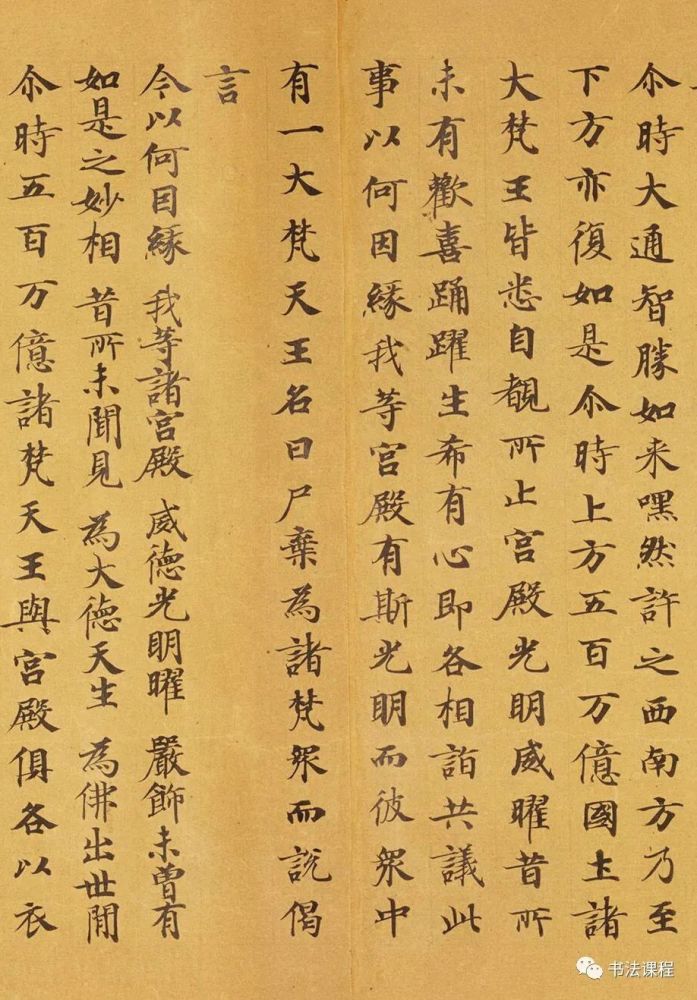 尒時大通智勝如来嘿然許之西南方乃至
下方亦復如是尒時上方五百万億國土諸
大梵王皆悉自覩所止宮殿光明威曜昔所
未有歡喜踊躍生希有心即各相詣共議此
事以何因緣我等宮殿有斯光明而彼衆中
有一大梵天王名曰尸棄為諸梵衆而說偈
言
今以何因緣 我等諸宮殿 威德光明曜 嚴飾未曾有
如是之妙相 昔所未聞見 為大德天生 為佛出世間
尒時五百万億諸梵天王與宮殿俱各以衣
书法课程